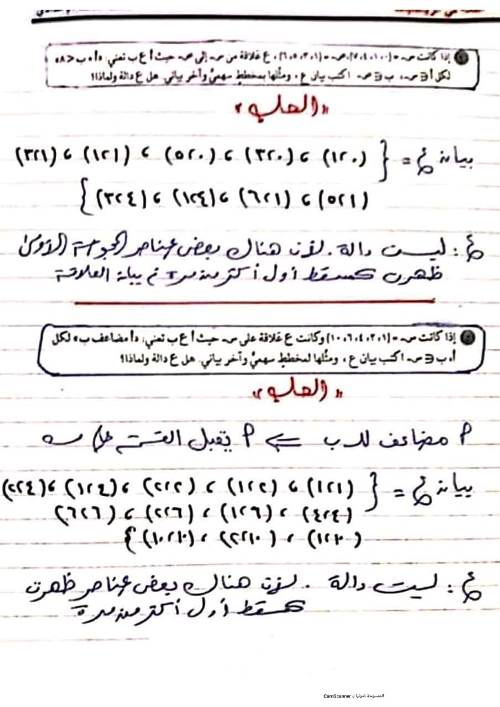 إذا كانت س = {٠، ١، ٤، ٧}، ص = {١، ٣، ٥، ٦}، ع علاقة من س إلى ص، حيث أ ع ب تعني: «أ + ب < ٨»
لكل أ ∈ س، ب ∈ ص. اكتب بيان ع، ومثلها بمخطط سهمي وآخر بياني. هل ع دالة ولماذا؟
«الحل»
بيان ع = { (١،٠) ، (٣،٠) ، (٥،٠) ، (١،١) ، (٣،١)
(٥،١) ، (٦،١) ، (١،٤) ، (٣،٤) }
ع: ليست دالة. لأن هناك بعض عناصر المجموعة الأولى
ظهرت كمسقط أول أكثر من مرة في بيان العلاقة
إذا كانت س = {١، ٢، ٤، ٦، ١٠} وكانت ع علاقة على س حيث أ ع ب تعني: «أ مضاعف ب» لكل
أ، ب ∈ س. اكتب بيان ع، ومثلها لمخطط سهمي وآخر بياني. هل ع دالة ولماذا؟
«الحل»
أ مضاعف لـ ب ⇐ أ يقبل القسمة على ب
بيان ع = { (١،١) ، (١،٢) ، (٢،٢) ، (١،٤) ، (٢،٤)
(٤،٤) ، (١،٦) ، (٢،٦) ، (٦،٦)
(١،١٠) ، (٢،١٠) ، (١٠،١٠) }
ع: ليست دالة. لأن هناك بعض عناصر ظهرت
كمسقط أول أكثر من مرة
CamScanner الممسوحة ضوئيا بـ